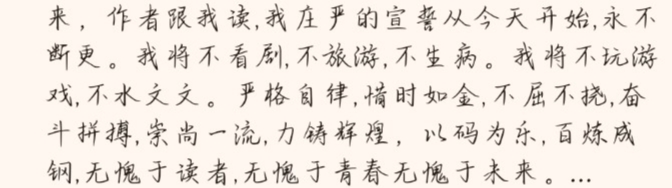 来，作者跟我读,我庄严的宣誓从今天开始,永不
断更。我将不看剧,不旅游,不生病。我将不玩游
戏,不水文文。严格自律,惜时如金,不屈不挠,奋
斗拼搏,崇尚一流,力铸辉煌，以码为乐,百炼成
钢,无愧于读者,无愧于青春无愧于未来。...